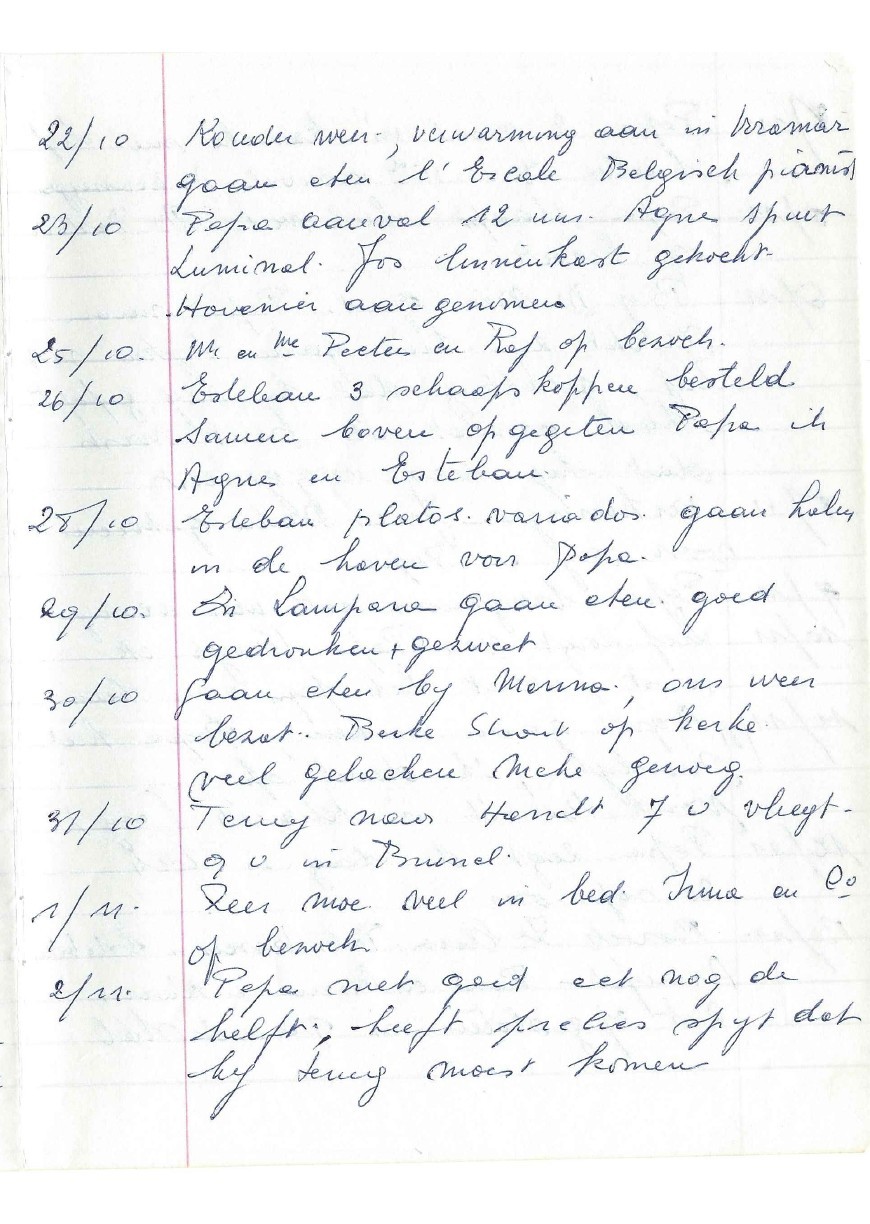 22/10 Kouder weer, verwarming aan in
gaan eten l'Escale Belgisch pianist
23/10 Papa aanval 12 uur. Agnes spuit
Luminal. Jos linnenkast gekocht
Hovenier aangenomen
25/10 Mr en Me Peeters en Raf op bezoek.
26/10 Esteban 3 schaapskoppen besteld
Samen boven opgegeten Papa ik
Agnes en Esteban.
28/10 Esteban platos variados gaan halen
in de haven voor Papa.
29/10. In Lampara gaan eten. goed
gedronken + gezweet
30/10 Gaan eten by, ons weer
bezat. op kerke
veel gelachen genoeg.
31/10 Terug naar 7 u vliegt.
9 u in Brussel.
1/11. Zeer moe veel in bed. Irma en Co
op bezoek
2/11. Papa niet goed eet nog de
helft, heeft precies spyt dat
hy terug moest komen